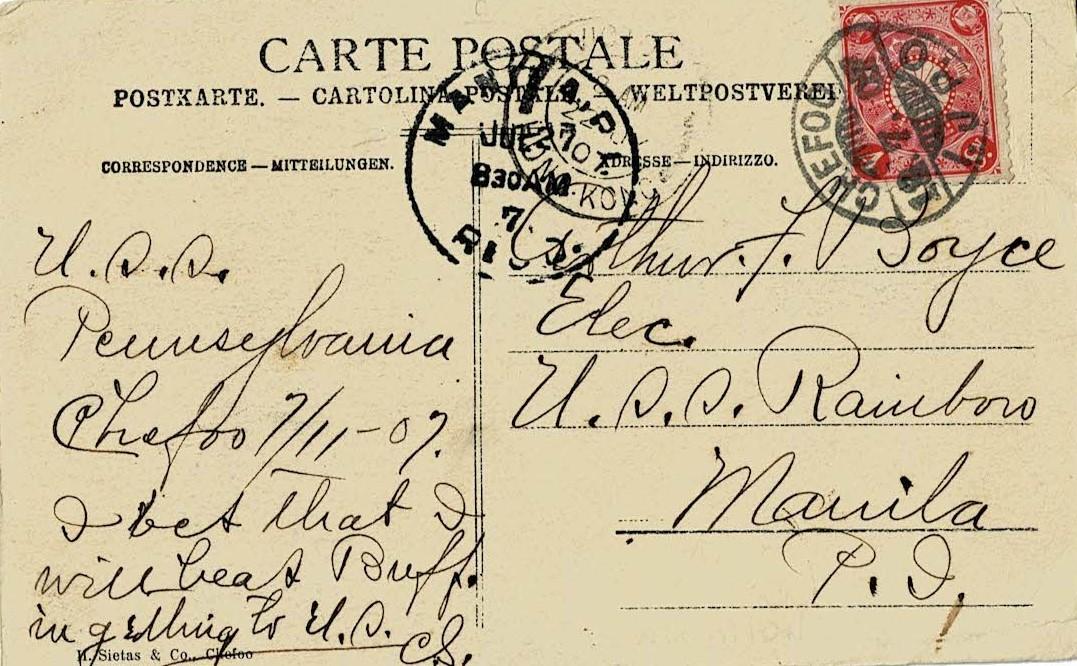 CARTE POSTALE
POSTKARTE. — CARTOLINA POSTALE — WELTPOSTVEREI
CORRESPONDENCE — MITTEILUNGEN.
ADRESSE — INDIRIZZO.
CHEFOO
HONG-KONG
JUL 27
8 30 AM
U.S.S.
Pennsylvania
Chefoo 7/11-07.
I bet that I
will beat Buff.
in getting to U.S.
CS.
H. Sietas & Co., Chefoo
Arthur F. Boyce
Elec.
U.S.S. Rainbow
Manila
P.I.